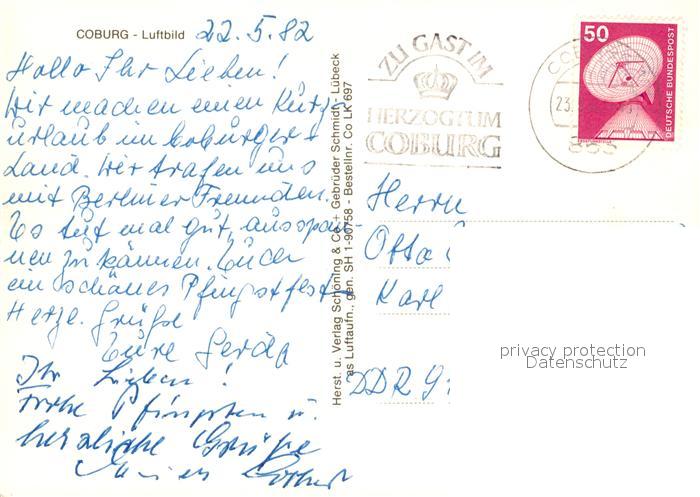 COBURG - Luftbild 22.5.82
Hallo Ihr Lieben!
Wir machen einen Kurz-
urlaub im Coburger-
Land. Wir trafen uns
mit Berliner Freunden.
Es tut mal gut, ausspan-
nen zu können. Euch
ein schönes Pfingstfest
Herzl. Grüße
Eure Gerda
Ihr Lieben!
Frohe Pfingsten u.
herzliche Grüße
Herst. u. Verlag Schöning & Co.+ Gebrüder Schmidt, Lübeck
as Luftaufn., gen. SH 1-96758 - Bestellnr. Co LK 697
ZU GAST IM
HERZOGTUM
COBURG
CO
23.
863
50
DEUTSCHE BUNDESPOST
Herrn
Otto
Karl
DDR
privacy protection
Datenschutz